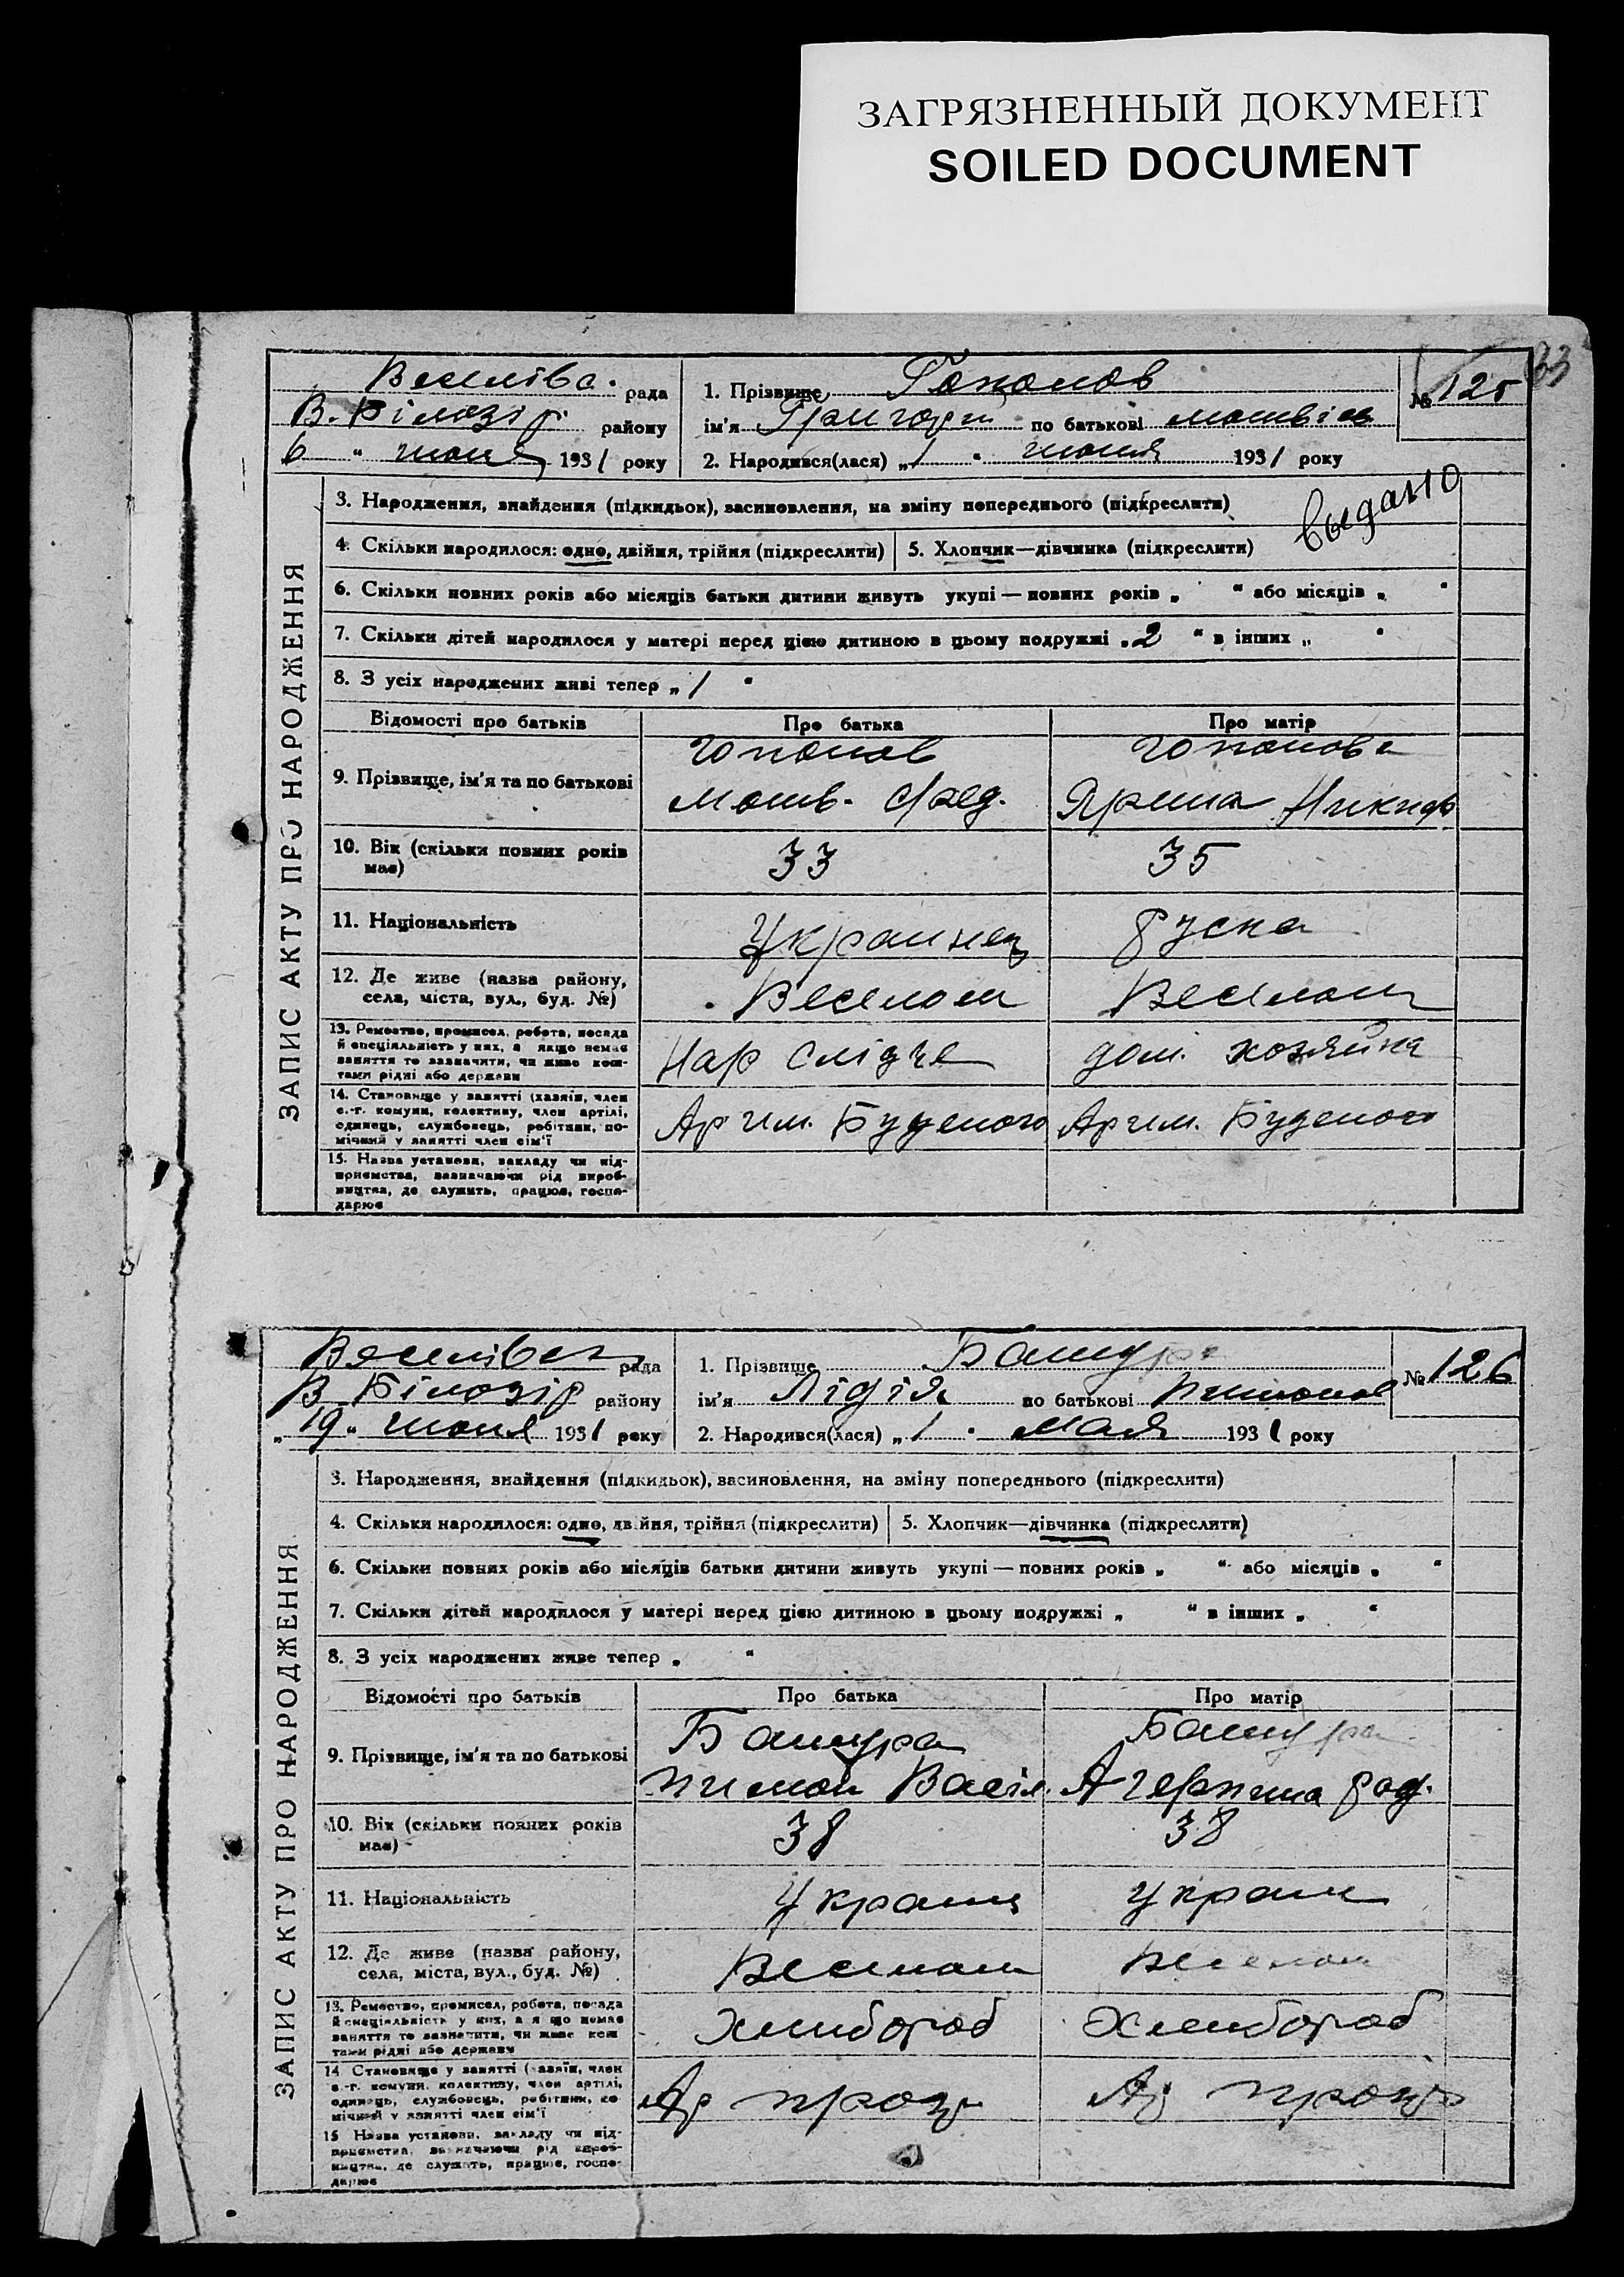 ЗАГРЯЗНЕННЫЙ ДОКУМЕНТ
SOILED DOCUMENT
33
рада
В. Білозір. району
6 " июня 1931 року
1. Прізвище Гопонов
ім'я Григорій по батькові
2. Народився(лася) „ 1 " июня 1931 року
№ 125
выдано
ЗАПИС АКТУ ПРО НАРОДЖЕННЯ
3. Народження, знайдення (підкидьок), засиновлення, на зміну попереднього (підкреслити)
4. Скільки народилося: одно, двійня, трійня (підкреслити) 5. Хлопчик—дівчинка (підкреслити)
6. Скільки повних років або місяців батьки дитини живуть укупі — повних років „ " або місяців „ "
7. Скільки дітей народилося у матері перед цією дитиною в цьому подружжі „ 2 " в інших „ "
8. З усіх народжених живі тепер „ 1 "
Відомості про батьків Про батька Про матір
9. Прізвище, ім'я та по батькові
Гопонов Гопонова
Матв. Фед. Ярина Никиф
10. Вік (скільки повних років має) 33 35
11. Національність Украинец Руска
12. Де живе (назва району, села, міста, вул., буд. №)
13. Ремество, промисел, робота, посада й спеціяльність у них, а якщо немає заняття то зазначити, чи живе коштами рідні або держави
Нар слідче дом. хозяйка
14. Становище у занятті (хазяїн, член с.-г. комуни, колективу, член артілі, одинець, службовець, робітник, помічний у занятті член сім'ї
Ар им. Буденого Ар им. Буденого
15. Назва установи, закладу чи підприємства, зазначаючи рід виробництва, де служить, працює, господарює
рада
В Білозір району
„ 19 " июня 1931 року
1. Прізвище Башура
ім'я Лідія по батькові
2. Народився(лася) „ 1 " мая 1931 року
№ 126
ЗАПИС АКТУ ПРО НАРОДЖЕННЯ
3. Народження, знайдення (підкидьок), засиновлення, на зміну попереднього (підкреслити)
4. Скільки народилося: одно, двійня, трійня (підкреслити) 5. Хлопчик—дівчинка (підкреслити)
6. Скільки повних років або місяців батьки дитини живуть укупі — повних років „ " або місяців „ "
7. Скільки дітей народилося у матері перед цією дитиною в цьому подружжі „ " в інших „ "
8. З усіх народжених живе тепер „ "
Відомості про батьків Про батька Про матір
9. Прізвище, ім'я та по батькові
Башура Башура
Пимон Васіл. Агерпина Род.
10. Вік (скільки повних років має) 38 38
11. Національність Украин Украин
12. Де живе (назва району, села, міста, вул., буд. №)
13. Ремество, промисел, робота, посада й спеціяльність у них, а якщо немає заняття то зазначити, чи живе коштами рідні або держави
Хлибороб Хлибороб
14. Становище у занятті (хазяїн, член с.-г. комуни, колективу, член артілі, одинець, службовець, робітник, помічний у занятті член сім'ї
15. Назва установи, закладу чи підприємства, зазначаючи рід виробництва, де служить, працює, господарює